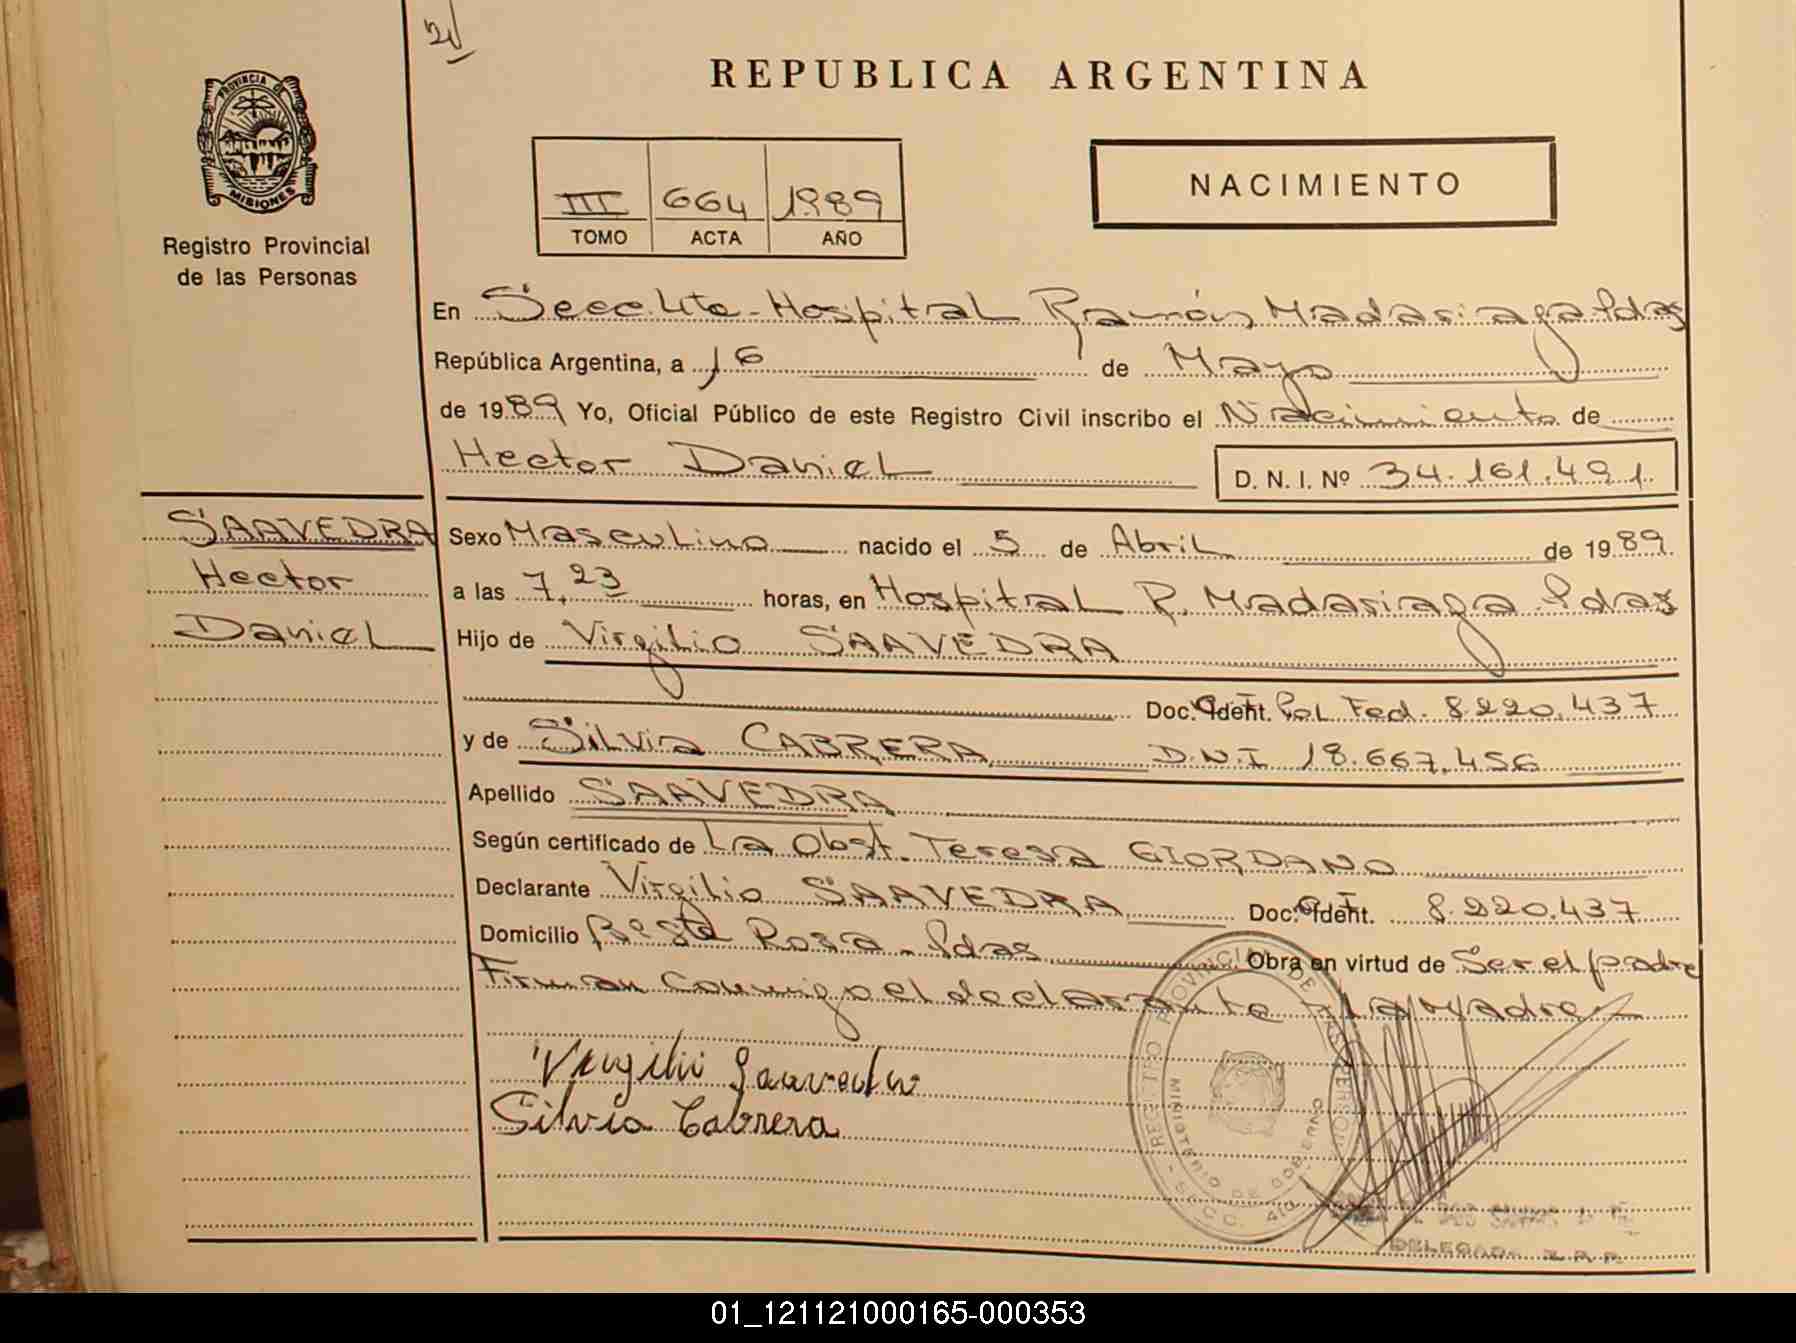 21
PROVINCIA DE
MISIONES
Registro Provincial
de las Personas
REPUBLICA ARGENTINA
III 664 1989
TOMO ACTA AÑO
NACIMIENTO
En Secc. 4ta - Hospital Ramón Madariaga Pdas
República Argentina, a 16 de Mayo
de 1989 Yo, Oficial Público de este Registro Civil inscribo el Nacimiento de
Hector Daniel D. N. I. Nº 34.161.491
SAAVEDRA
Hector
Daniel
Sexo Masculino nacido el 5 de Abril de 1989
a las 7,23 horas, en Hospital R. Madariaga Pdas
Hijo de Virgilio SAAVEDRA
Doc. Ident. C.I. Pol. Fed. 8.220.437
y de Silvia CABRERA D.N.I 18.667.456
Apellido SAAVEDRA
Según certificado de La Obst. Teresa GIORDANO
Declarante Virgilio SAAVEDRA Doc. Ident. C.I. 8.220.437
Domicilio Rosa - Pdas Obra en virtud de Ser el padre
Firman conmigo el declarante La Madre
Virgilio Saavedra
Silvia Cabrera
REGISTRO PROVINCIAL DE LAS PERSONAS
MINISTERIO DE GOBIERNO
SECC. 4ta
DELEGADA R.P.P.
01_121121000165-000353